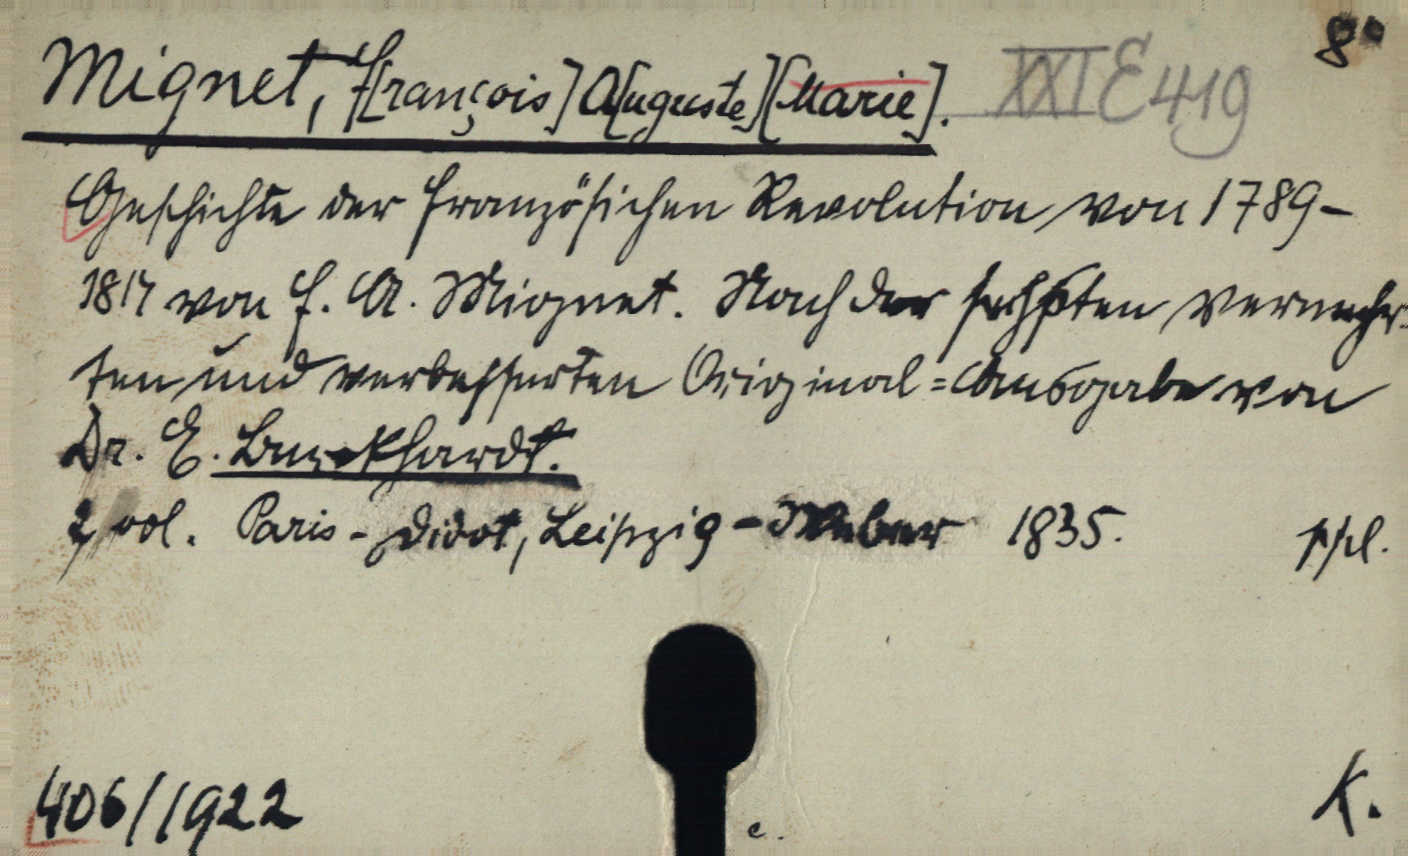 8°
Mignet, F[rançois] A[uguste][Marie]. XXI E 419
Geschichte der französischen Revolution von 1789-
1814 von F. A. Mignet. Nach der sechsten vermehr-
ten und verbesserten Original=Ausgabe von
Dr. E. Burckhardt.
2 vol. Paris - Didot, Leipzig - Weber 1835.
406/1922 K.
c.